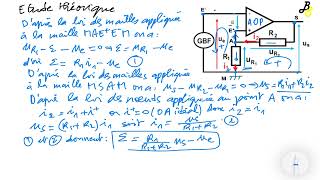 Etude théorique
D'après la loi des mailles appliquée
à la maille MAEFEM on a:
u_R1 - ε - u_e = 0 ⇒ ε = u_R1 - u_e
d'où ε = R_1 i_1 - u_e ①
D'après la loi des mailles appliquée
à la maille MSAM on a: u_S - u_R2 - u_R1 = 0 ⇒ u_S = R_1 i_1 + R_2 i_2
D'après la loi des nœuds appliquée au point A on a:
i_2 = i_1 + i^- or i^- = 0 (AOP idéal) donc i_2 = i_1
u_S = (R_1 + R_2) i_1 soit i_1 = u_S / (R_1 + R_2) ②
① et ② donnent: ε = R_1 / (R_1 + R_2) u_S - u_e
B
E
AOP
S
GBF
R_2
R_1
M